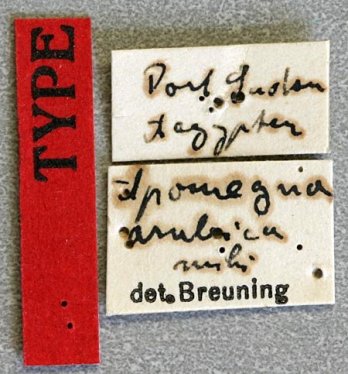 TYPE
Port Sudan
Aegypten
Apomecyna
arabica
mihi
det. Breuning